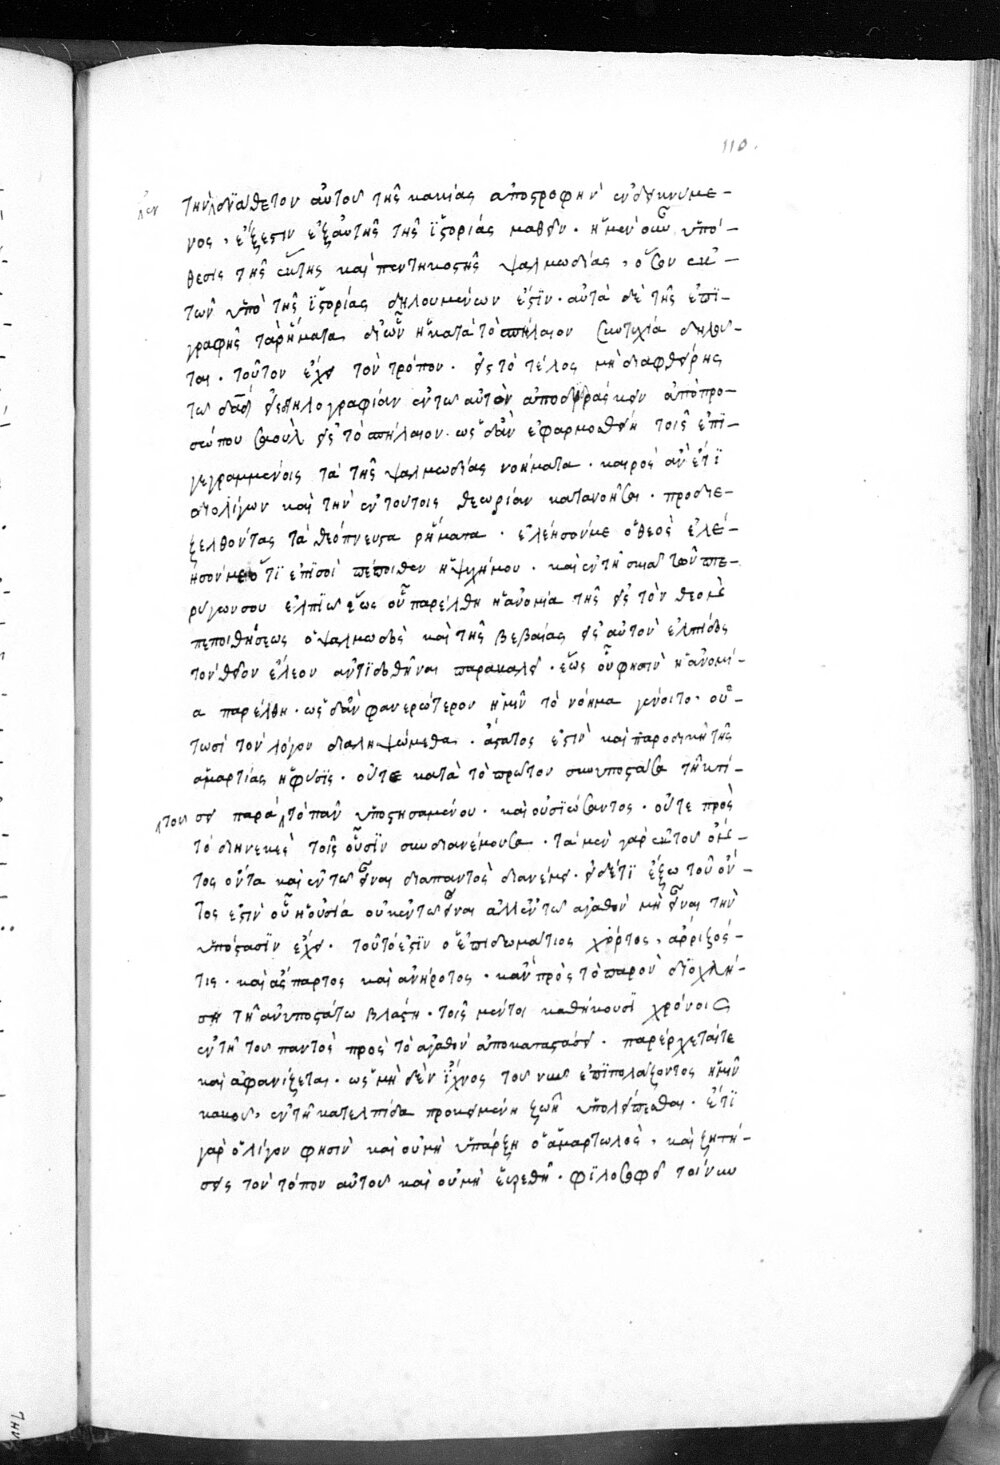 110.
την ἐνδϊάθετον αὐτοῦ τῆς κακίας ἀποστροφὴν ἐνδεικνυμε-
νος, ἔξεστιν ἐξ αὐτῆς τῆς ἱστορίας μαθεῖν. ἡ μὲν οὖν ὑπό-
θεσις τῆς ἕκτης καὶ πεντηκοστῆς ψαλμωδίας, ὅσον ἐκ
τῶν ὑπὸ τῆς ἱστορίας δηλουμένων ἐστίν. αὐτὰ δὲ τῆς ἐπι-
γραφῆς τὰ ῥήματα δι' ὧν ἡ κατὰ τὸ σπήλαιον δηλοῦ-
ται. τοῦτον ἔχει τὸν τρόπον. εἰς τὸ τέλος μὴ διαφθείρης
τῶ δαδ εἰς στηλογραφίαν ἐν τῶ αὐτὸν ἀποδιδράσκειν ἀπὸ προ-
σώπου σαοὺλ εἰς τὸ σπήλαιον. ὡς δ' ἂν ἐφαρμοσθείη τοῖς ἐπι-
γεγραμμένοις τὰ τῆς ψαλμωδίας νοήματα. καιρὸς ἂν εἴη
δι' ὀλίγων καὶ τὴν ἐν τούτοις θεωρίαν κατανοῆσαι. προδιε-
ξελθόντας τὰ θεόπνευστα ῥήματα. ἐλέησόν με ὁ θεὸς ἐλέ-
ησόν με ὅτι ἐπὶ σοὶ πέποιθεν ἡ ψυχή μου. καὶ ἐν τῆ σκιᾶ τῶν πτε-
ρύγων σου ἐλπιῶ ἕως οὗ παρέλθη ἡ ἀνομία τῆς εἰς τὸν θεὸν
πεποιθήσεως ὁ ψαλμωδὸς καὶ τῆς βεβαίας εἰς αὐτὸν ἐλπίδος
τὸν θεῖον ἔλεον ἀντιδοθῆναι παρακαλεῖ. ἕως οὗ φησιν ἡ ἀνομί-
α παρέλθη. ὡς δ' ἂν φανερώτερον ἡμῖν τὸ νόημα γένοιτο. οὑ-
τωσὶ τὸν λόγον διαληψώμεθα. ἄστατός ἐστιν καὶ παροδικὴ τῆς
ἁμαρτίας ἡ φύσις. οὔτε κατὰ τὸ πρῶτον συνυποστᾶσα τῆ κτί-
σει παρὰ τοῦ τὸ πᾶν ὑποστησαμένου. καὶ οὐσιώσαντος. οὔτε πρὸς
τὸ διηνεκὲς τοῖς οὖσιν συνδιανέμουσα. τὰ μὲν γὰρ ἐκ τοῦ ὄν-
τος ὄντα καὶ ἐν τῶ εἶναι διαπαντὸς διαμένει. εἰ δέ τι ἔξω τοῦ ὄν-
τος ἐστὶν οὗ ἡ οὐσία οὐκ ἐν τῶ εἶναι ἀλλ' ἐν τῶ ἀγαθὸν μὴ εἶναι τὴν
ὑπόστασιν ἔχει. τοῦτό ἐστιν ὁ ἐπιδωμάτιος χόρτος, ἄρριζός
τις. καὶ ἄσπαρτος καὶ ἀνήροτος. κἂν πρὸς τὸ παρὸν διοχλή-
ση τῆ ἀνυποστάτω βλάστη. τοῖς μέντοι καθήκουσι χρόνοις
ἐν τῆ τοῦ παντὸς πρὸς τὸ ἀγαθὸν ἀποκαταστάσει. παρέρχεταί τε
καὶ ἀφανίζεται. ὡς μηδὲν ἴχνος τοῦ νῦν ἐπιπολάζοντος ἡμῖν
κακοῦ, ἐν τῆ κατ' ἐλπίδα προκειμένη ζωῆ ὑπολείπεσθαι. ἔτι
γὰρ ὀλίγον φησὶν καὶ οὐ μὴ ὑπάρξη ὁ ἁμαρτωλός, καὶ ζητή-
σεις τὸν τόπον αὐτοῦ καὶ οὐ μὴ εὑρεθῆ. φιλοσοφεῖ τοίνυν